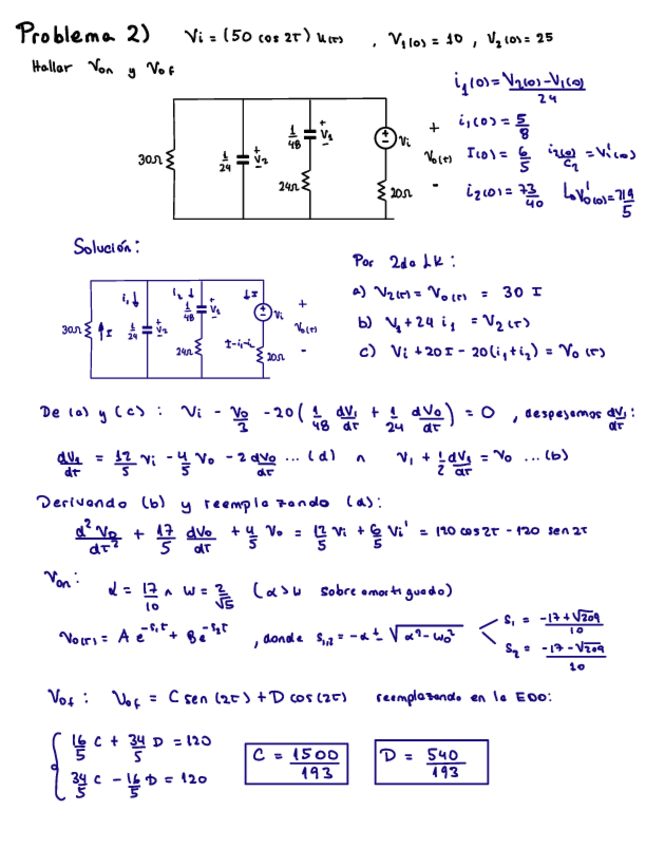 Problema 2) Vi = (50 cos 2t) u(t) , V₁(0) = 10 , V₂(0) = 25
Hallar Von y Vof
i₁(0) = V₂(0) - V₁(0) / 24
i₁(0) = 5/8
I(0) = 6/5 i₂(0)/C₂ = V₀'(0)
i₂(0) = 73/40 L₀V₀'(0) = 719/5
30Ω 1/24 + V₂ - 1/48 + V₁ - 24Ω Vi 20Ω + V₀(t) -
Solución:
i₁↓ i₂↓ ↓I
30Ω ↑I 1/24 + V₂ - 1/48 V₁ 24Ω I-i₁-i₂ Vi 20Ω + V₀(t) -
Por 2da LK:
a) V₂(t) = V₀(t) = 30 I
b) V₁ + 24 i₁ = V₂(t)
c) Vi + 20I - 20(i₁+i₂) = V₀(t)
De (a) y (c) : Vi - V₀/3 - 20( 1/48 dV₁/dt + 1/24 dV₀/dt ) = 0 , despejamos dV₁/dt :
dV₁/dt = 12/5 Vi - 4/5 V₀ - 2 dV₀/dt ... (d) ∧ V₁ + 1/2 dV₁/dt = V₀ ... (b)
Derivando (b) y reemplazando (d):
d²V₀/dt² + 17/5 dV₀/dt + 4/5 V₀ = 12/5 Vi + 6/5 Vi' = 120 cos 2t - 120 sen 2t
Von : α = 17/10 ∧ w = 2/√5 (α>w sobre amortiguado)
V₀(t) = A e^-s₁t + B e^-s₂t , donde s₁,₂ = -α ± √α²-w₀²
s₁ = -17+√209 / 10
s₂ = -17-√209 / 10
Vof : Vof = C sen (2t) + D cos (2t) reemplazando en la EDO:
16/5 C + 34/5 D = 120
34/5 C - 16/5 D = 120
C = 1500/193
D = 540/193